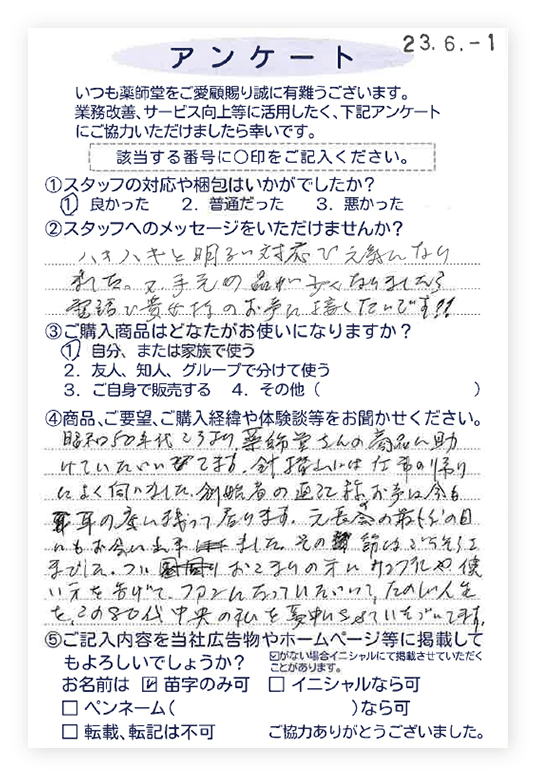 23.6.-1
アンケート
いつも薬師堂をご愛顧賜り誠に有難うございます。
業務改善、サービス向上等に活用したく、下記アンケート
にご協力いただけましたら幸いです。
該当する番号に○印をご記入ください。
①スタッフの対応や梱包はいかがでしたか?
1. 良かった 2. 普通だった 3. 悪かった
②スタッフへのメッセージをいただけませんか?
ハキハキと明るい対応で元気になり
ました。又、手元の品が少くなりましたら
電話で貴女様のお声に接したいです!!
③ご購入商品はどなたがお使いになりますか?
1. 自分、または家族で使う
2. 友人、知人、グループで分けて使う
3. ご自身で販売する 4. その他( )
④商品、ご要望、ご購入経緯や体験談等をお聞かせください。
昭和50年代ころより、薬師堂さんの商品に助
けていただいてます。 には仕事の帰り
によく伺いました。創始者の 様お声は今も
耳の底に残って居ります。元長 の最 の日
にもお会い出来ました。その節はごちそうさ
までした。つい おこまりの方にサンプルや使
い方を告げて、ファンになっていただいて、たのしい人生
を、この80代中央の私を夢中にさせていただいてます。
⑤ご記入内容を当社広告物やホームページ等に掲載して
もよろしいでしょうか? ☑がない場合イニシャルにて掲載させていただく
ことがあります。
お名前は ☑ 苗字のみ可 □ イニシャルなら可
□ ペンネーム( )なら可
□ 転載、転記は不可 ご協力ありがとうございました。